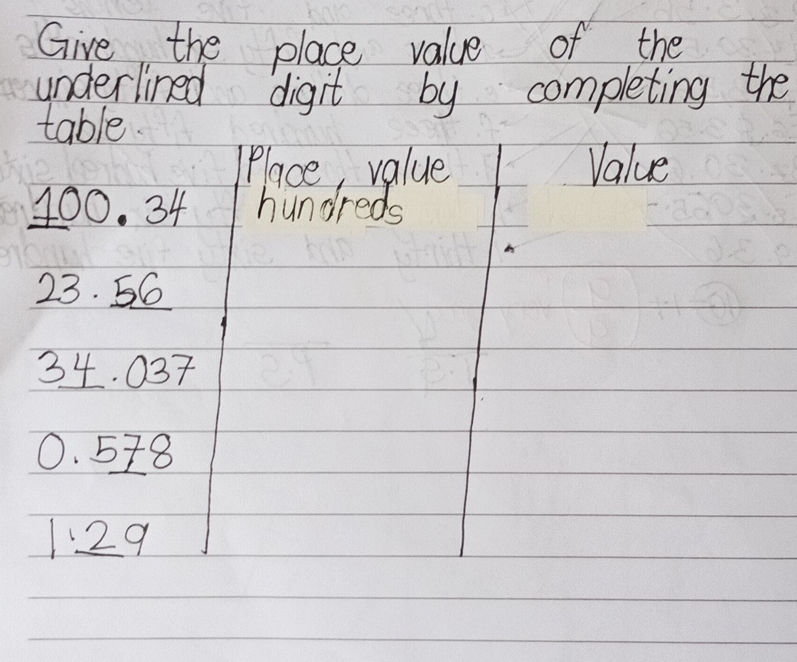 Give the place value of the
underlined digit by completing the
table.
Place value Value
100.34 hundreds
23.56
34.037
0.578
1.29